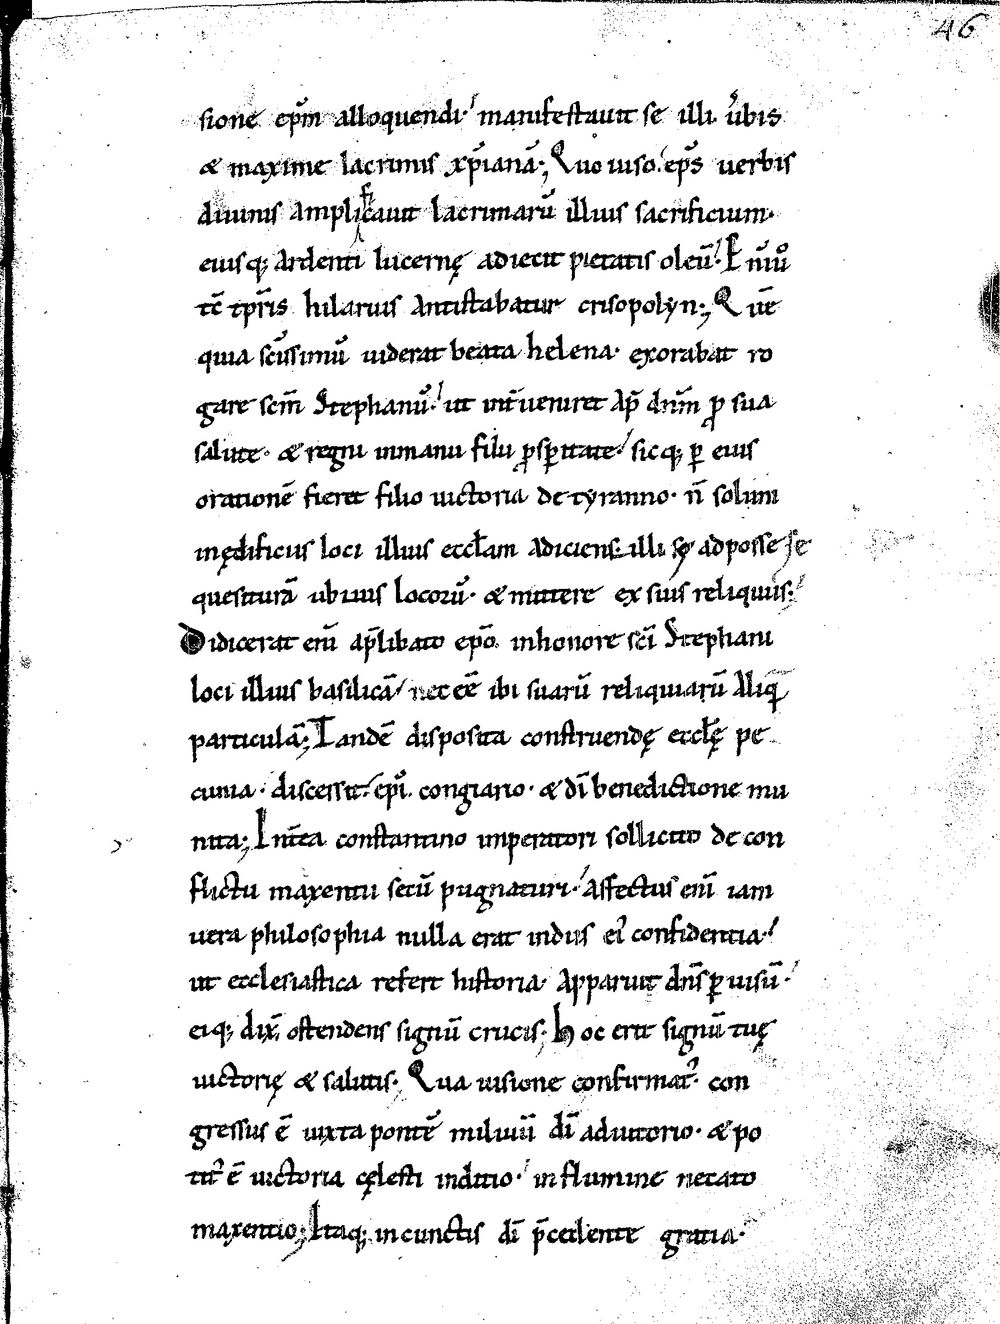 46
sione ep̄m alloquendi· manifestauit se illi ūbis
& maxime lacrimis xp̄ianā; Quo uiso ep̄s uerbis
diuinis amplificauit lacrimarū illius sacrificium·
eiusq; ardenti lucernę adiecit pietatis oleū·
tc̄ tp̄ris hilarius antistabatur crisopolyn; Quē
quia sc̄issimū uiderat beata helena· exorabat ro
gare sc̄m Stephanū· ut int̄ueniret ap̄ dn̄m ꝓ sua
salute· & regni inmanu filii ꝓsꝑitate sicq; ꝑ eius
orationē fieret filio uictoria de tyranno· n̄ solum
inędificiis loci illius eccƚam adiciens illi adposse se
quesiturā ubiuis locorū· & mittere ex suis reliquiis·
Didicerat eni̅ ap̄libato ep̄o inhonore sc̄i Stephani
loci illius basilicā nec eē ibi suarū reliquiarū aliq̄
particulā; Tandē disposita construendę eccƚę pe
cunia· discessit ep̄i congiario· & di̅ benedictione mu
nita; Int̄ea constantino imperatori sollicito de con
flictu maxentii secū pugnaturi· Affectus eni̅ iam
uera philosophia nulla erat in diis ei confidentia·
ut ecclesiastica refert historia· Apparuit dn̄s ꝑ uisū·
eiq; dix̄ ostendens signū crucis· hoc erit signū tuę
uictorię & salutis· Qua uisione confirmat᷑· con
gressus ē iuxta pontē miluiū di̅ adiutorio· & po
tit᷑ ē uictoria cęlesti inditio· in flumine necato
maxentio; Itaq; incunctis di̅ p̄cedente gratia·